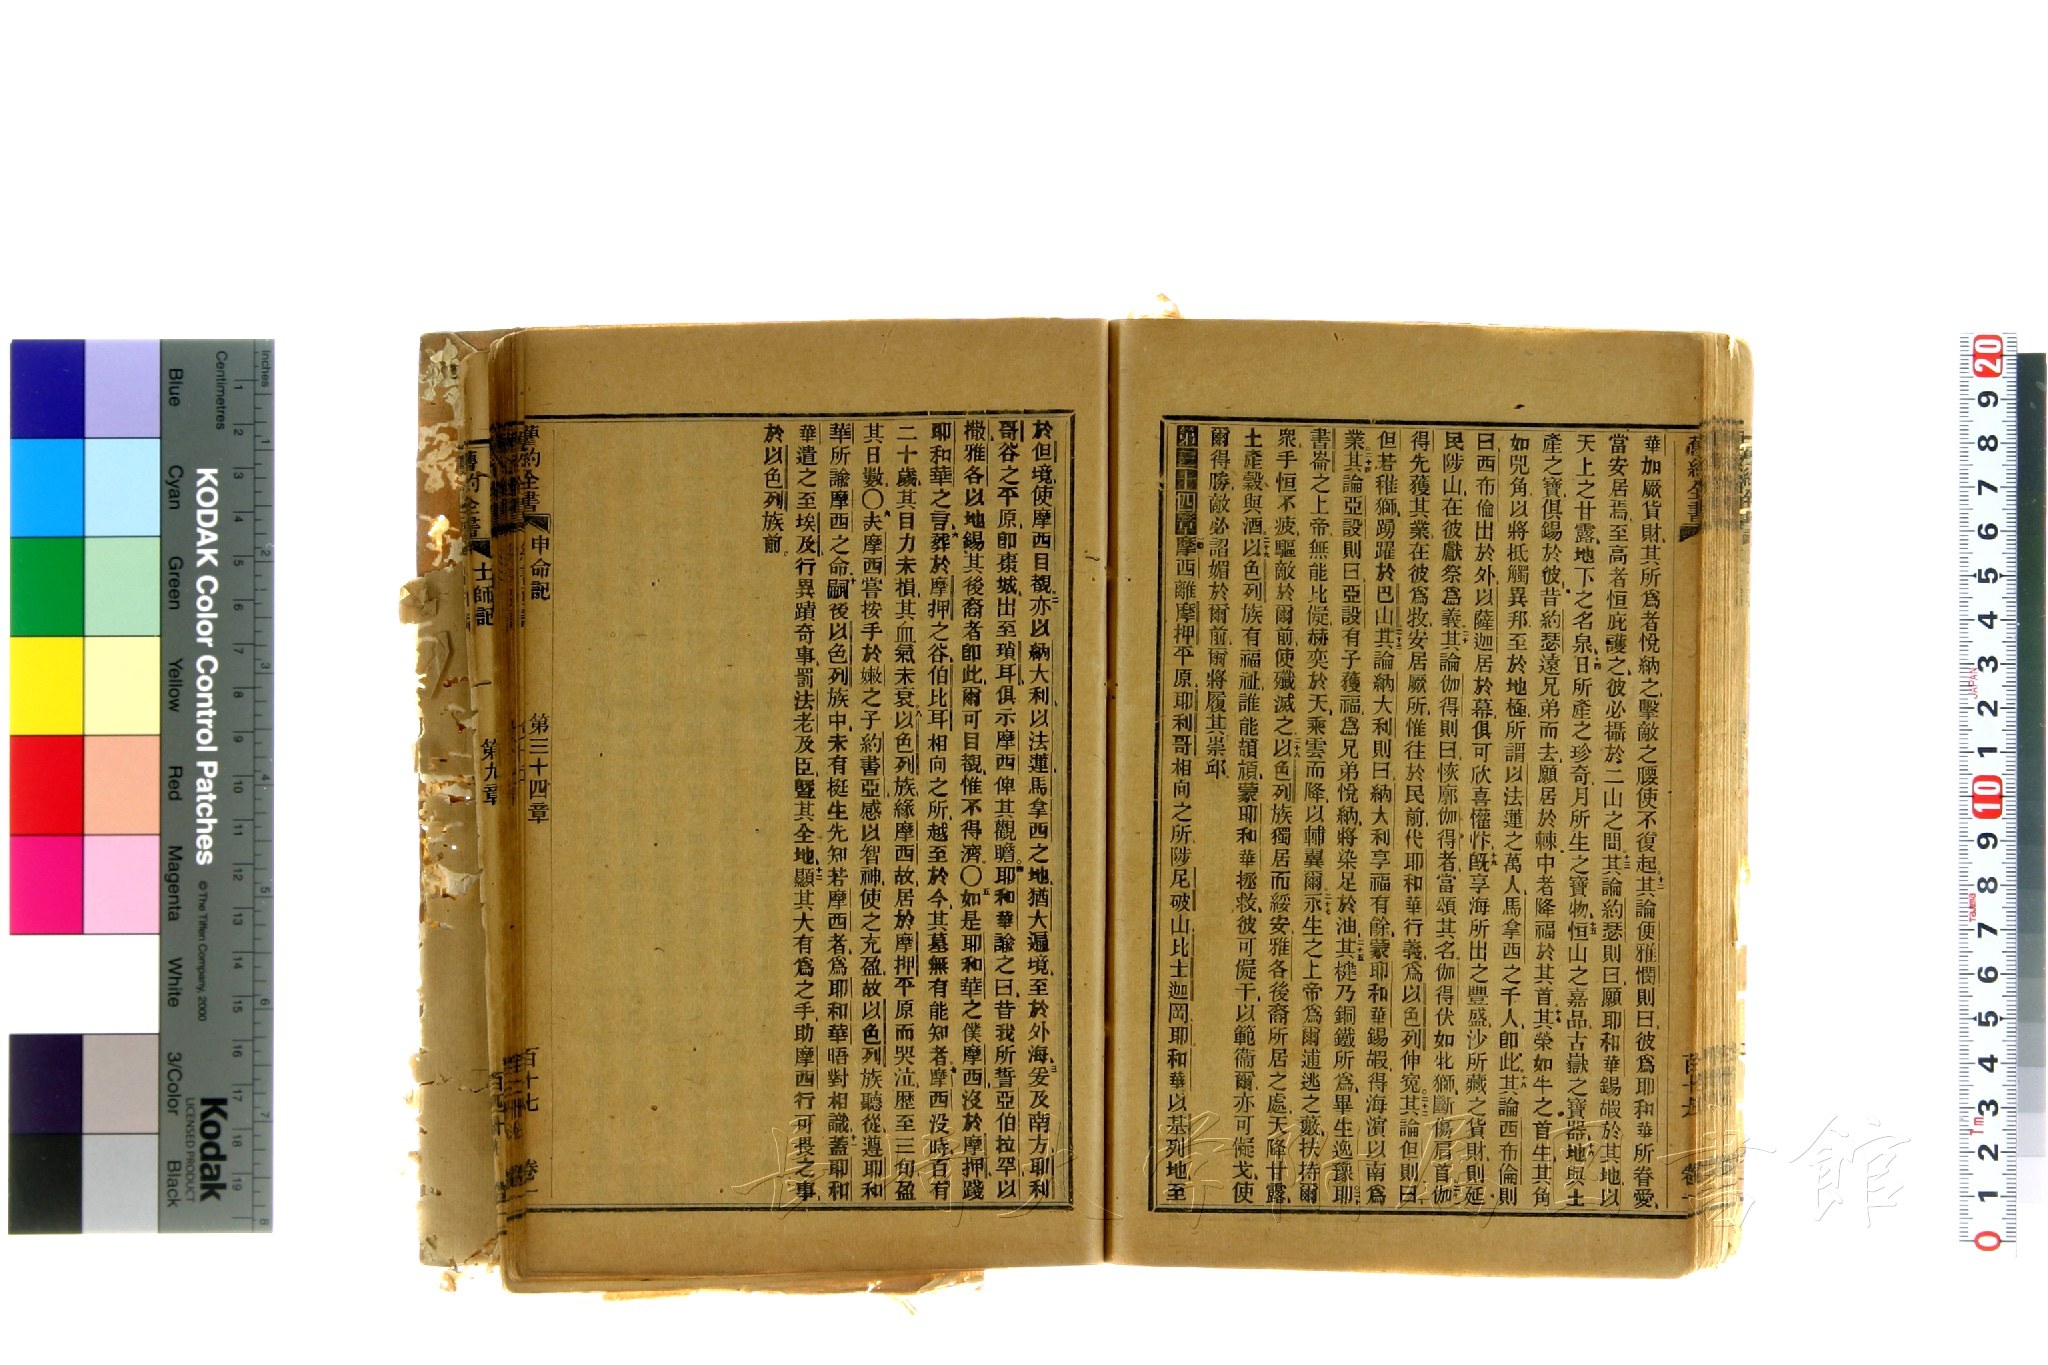 華加厥貨財其所爲者悅納之擊敵之腰使不復起其論便雅憫則曰彼爲耶和華所眷愛
當安居焉至高者恒庇護之彼必攝於二山之間其論約瑟則曰願耶和華錫嘏於其地以
天上之甘露地下之名泉日所產之珍奇月所生之寶物恒山之嘉品古嶽之寶器地與土
產之寶俱錫於彼昔約瑟遠兄弟而去願居於棘中者降福於其首其榮如牛之首生其角
如兕角以將抵觸異邦至於地極所謂以法蓮之萬人馬拿西之千人卽此其論西布倫則
曰西布倫出於外以薩迦居於幕俱可欣喜懽忭旣享海所出之豐盛沙所藏之貨財則延
民陟山在彼獻祭爲義其論伽得則曰恢廓伽得者當頌其名伽得伏如牝獅斷傷肩首伽
得先獲其業在彼爲牧安居厥所惟往於民前代耶和華行義爲以色列伸寃其論但則曰
但若稚獅踴躍於巴山其論納大利則曰納大利享福有餘蒙耶和華錫嘏得海濵以南爲
業其論亞設則曰亞設有子獲福爲兄弟悅納將染足於油其楗乃銅鐵所爲畢生逸豫耶
書崙之上帝無能比儗赫奕於天乘雲而降以輔翼爾永生之上帝爲爾逋逃之藪扶持爾
衆手恒不疲驅敵於爾前使殲滅之以色列族獨居而綏安雅各後裔所居之處天降甘露
土產穀與酒以色列族有福祉誰能頡頏蒙耶和華拯救彼可儗干以範衞爾亦可儗戈使
爾得勝敵必謟媚於爾前爾將履其崇邱
第三十四章摩西離摩押平原耶利哥相向之所陟尼破山比士迦岡耶和華以基列地至
於但境使摩西目覩亦以納大利以法蓮馬拿西之地猶大遍境至於外海爰及南方耶利
哥谷之平原卽棗城出至瑣耳俱示摩西俾其觀瞻耶和華諭之曰昔我所誓亞伯拉罕以
撒雅各以地錫其後裔者卽此爾可目覩惟不得濟〇如是耶和華之僕摩西沒於摩押踐
耶和華之言葬於摩押之谷伯比耳相向之所越至於今其墓無有能知者摩西沒時百有
二十歲其目力未損其血氣未衰以色列族緣摩西故居於摩押平原而哭泣歷至三旬盈
其日數〇夫摩西嘗按手於嫩之子約書亞感以智神使之充盈故以色列族聽從遵耶和
華所諭摩西之命嗣後以色列族中未有挺生先知若摩西者爲耶和華晤對相識蓋耶和
華遣之至埃及行異蹟奇事罰法老及臣曁其全地顯其大有爲之手助摩西行可畏之事
於以色列族前
舊約全書 申命記 第三十四章 百十七 卷一
舊約全書 士師記 第九章
長崎大学附属図書館
KODAK Color Control Patches
© The Tiffen Company, 2000
Kodak
LICENSED PRODUCT
Inches
Centimetres
Blue
Cyan
Green
Yellow
Red
Magenta
White
3/Color
Black